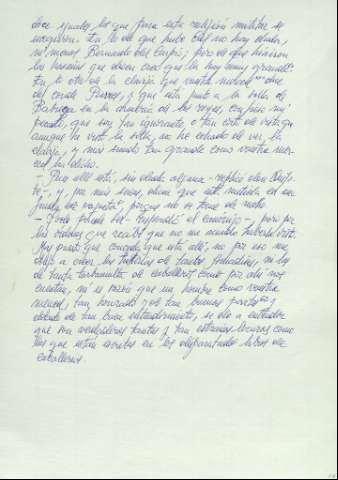 doce iguales, los que para esta religión militar se
escogieron. En lo de que hubo Cid no hay duda,
ni menos Bernardo del Carpio; pero de que hicieron
las hazañas que dicen creo que la hay muy grande.
En lo otro de la clavija que vuestra merced dice
del conde Pierres, y que está junto a la silla de
Babieca en la armería de los reyes, confieso mi
pecado, que soy tan ignorante o tan corto de vista que
aunque he visto la silla, no he echado de ver la
clavija, y más siendo tan grande como vuestra mer-
ced ha dicho.
- Pues allí está, sin duda alguna - replicó don Quijo-
te -, y, por más señas, dicen que está metida en una
funda de vaqueta, porque no se tome de moho
- Todo puede ser - respondió el canónigo -, pero por
las órdenes que recibí que no me acuerdo haberla visto.
Mas puesto que conceda que está allí, no por eso me
obligo a creer las historias de tantos Amadises, ni las
de tanta turbamulta de caballeros como por ahí nos
cuentan, ni es razón que un hombre como vuestra
merced, tan honrado y de tan buenas partes y
dotado de tan buen entendimiento, se dé a entender
que son verdaderas tantas y tan extrañas locuras como
las que están escritas en los disparatados libros de
caballerías.